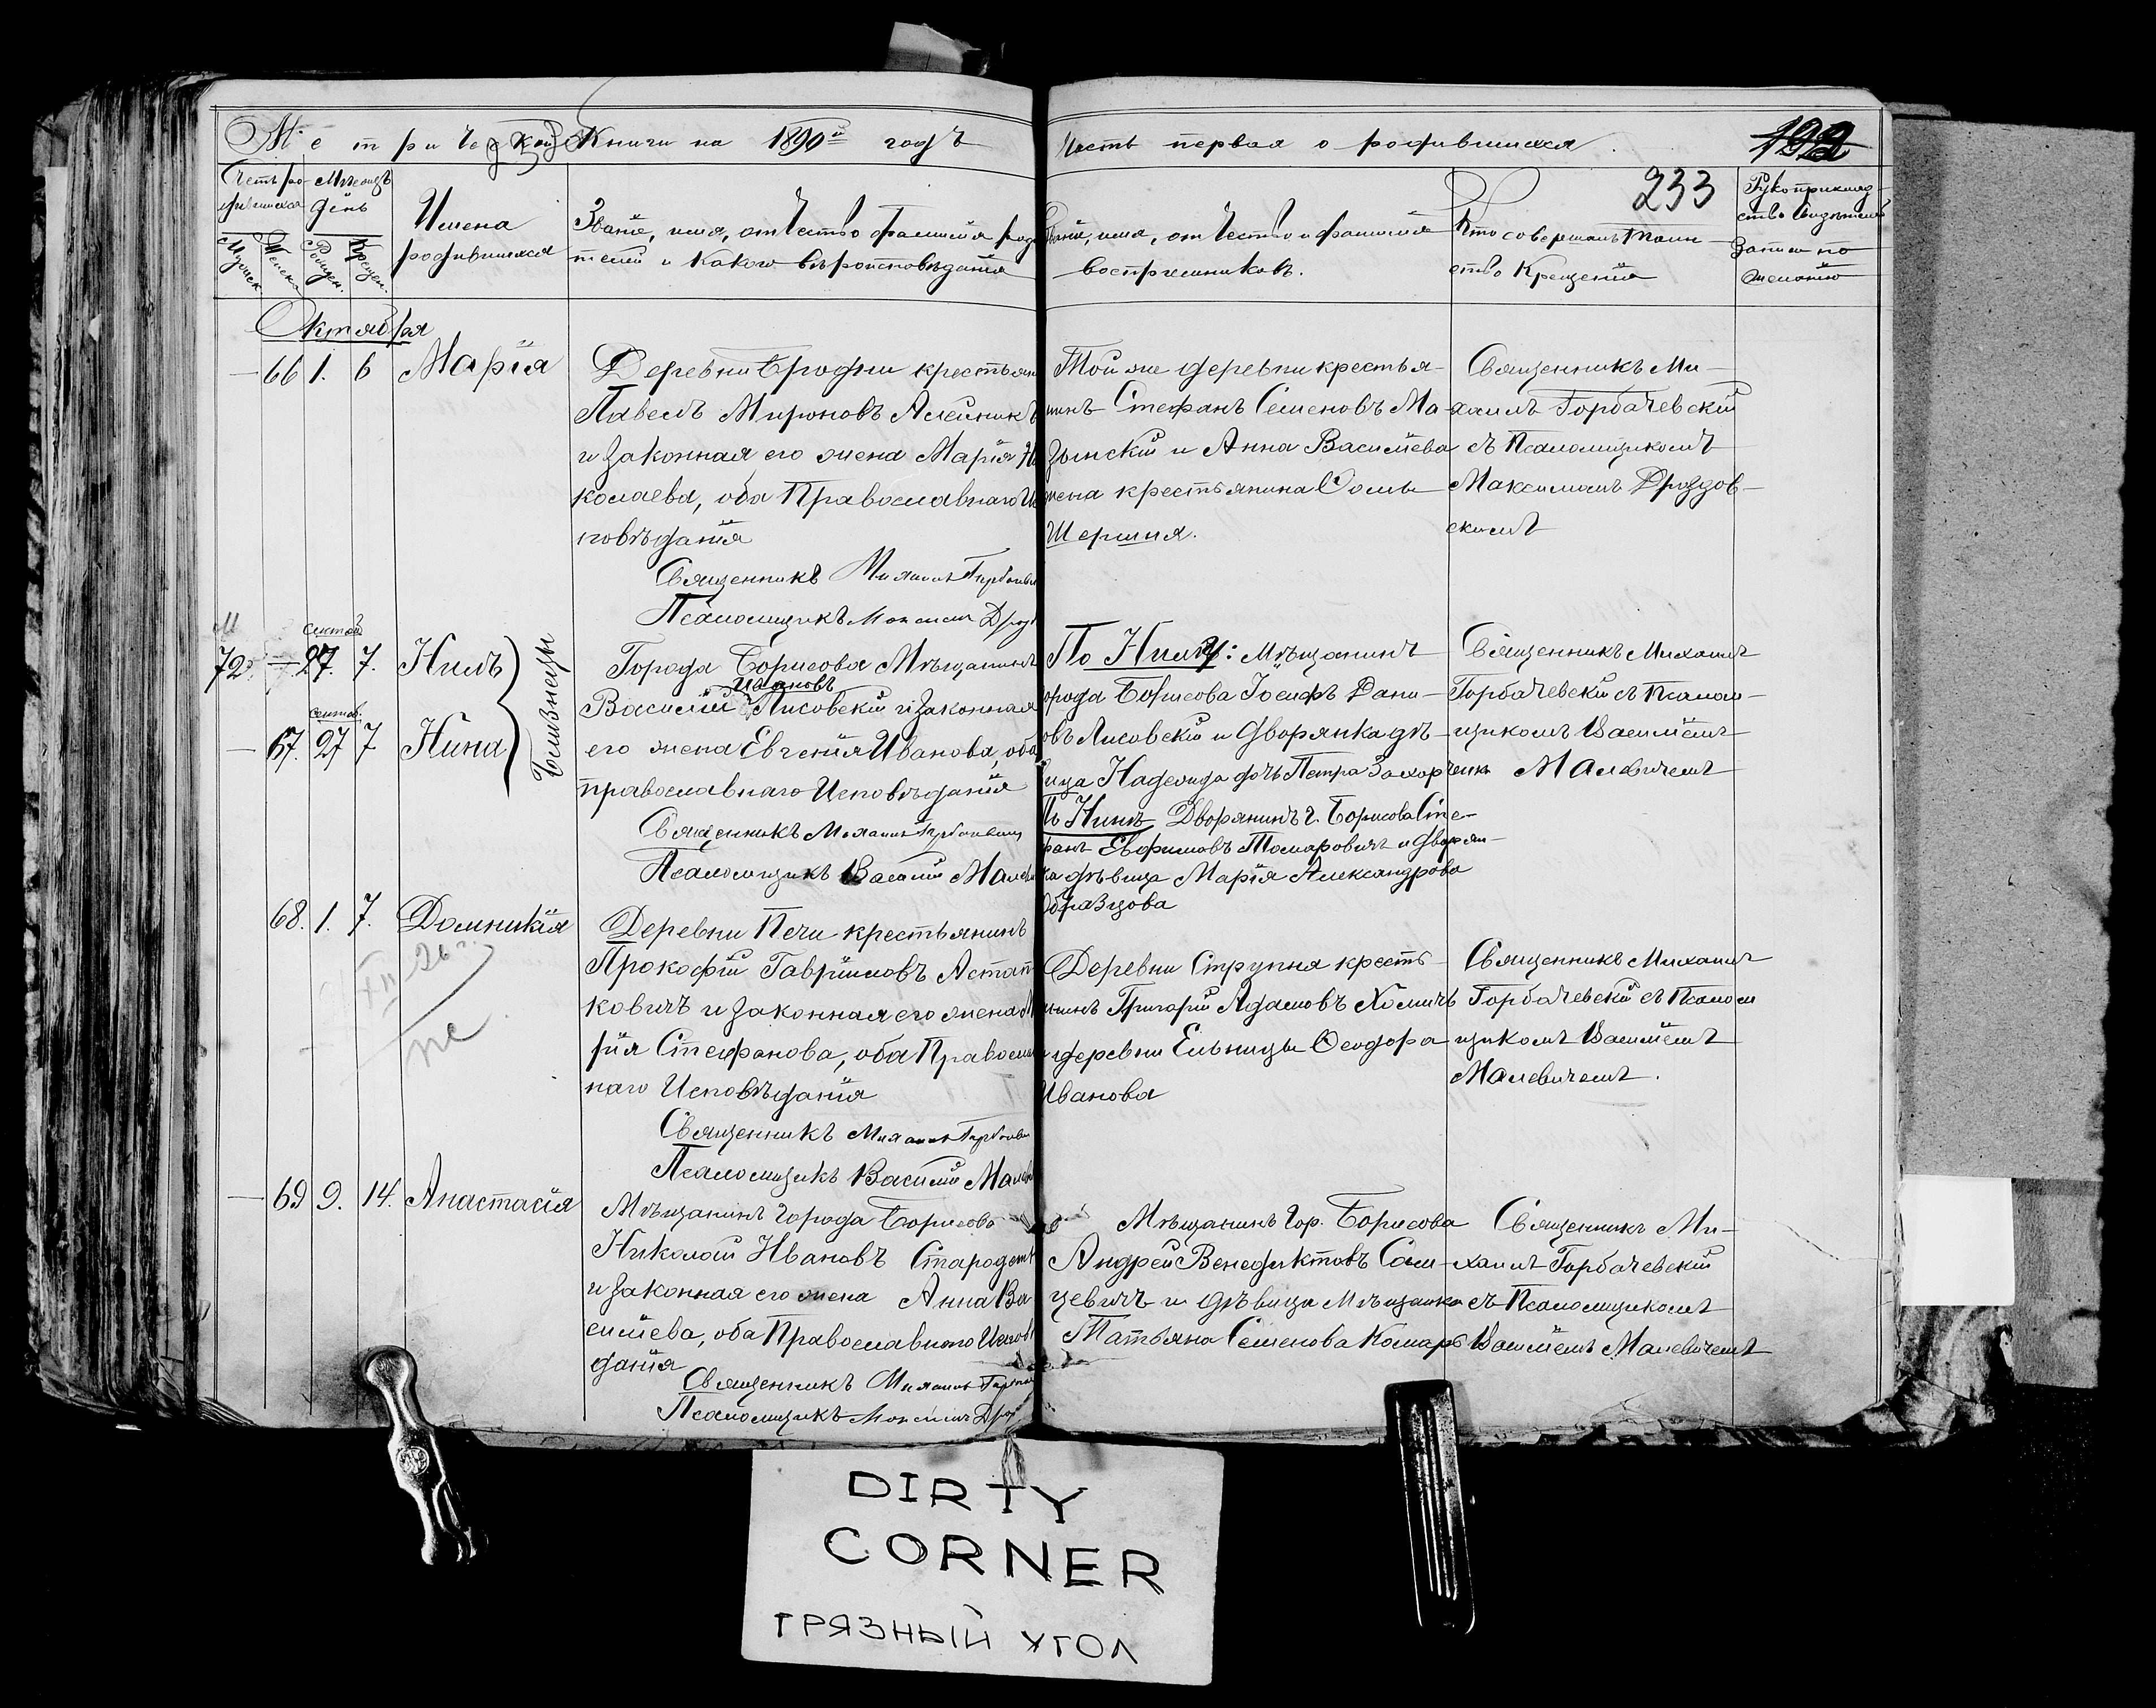 Метрической Книги на 1890й годъ
Часть первая о родившихся.
192
233
Счетъ ро-
дившихся
Мѣсяцъ
день
Мужеск.
Женска
Рожден.
Крещен.
Имена
родившихся
Званіе, имя, отчество фамилія роди
телей и какого вѣроисповѣданія
Званіе, имя, отчество и фамилія
воспріемниковъ.
Кто совершалъ таин-
ство Крещенія
Рукоприклад-
ство свидѣтелей
записи по
желанію
Октября
66 1. 6 Марія
Деревни Бродни крестьян
Павелъ Мироновъ Алейникъ
и законная его жена Марія Ни
колаева, оба Православнаго Ис
повѣданія
Священникъ Михаилъ Горбачевс
Псаломщикъ Максимъ Дроз
Той же деревни крестья-
нинъ Стефанъ Семеновъ Ма-
зынскій и Анна Василіева
жена крестьянина Сомы
Шершня.
Священникъ Ми-
хаилъ Горбачевскій
съ Псаломщикомъ
Максимомъ Дроздов-
скимъ
М
72.
сентяб.
27. 7. Нилъ
сентяб.
67. 27 7 Нина
Близнецы
Города Борисова Мѣщанинъ
Ивановъ
Василій Лисовскій и законная
его жена Евгенія Иванова, оба
православнаго Исповѣданія
Священникъ Михаилъ Горбачевскій
Псаломщикъ Василій Малев
По Нилу: Мѣщанинъ
орода Борисова Іосифъ Дани-
овъ Лисовскій и Дворянка дѣ-
вица Надежда дочь Петра Захорченк
По Нинѣ Дворянинъ г. Борисова Сте-
фанъ Евфимовъ Томаровичъ и Дворян-
ка дѣвица Марія Александрова
Образцова
Священникъ Михаилъ
Горбачевскій съ Псалом-
щикомъ Василіемъ
Малевичемъ
68. 1. 7. Домникія
XII 26 г.
Деревни Печи крестьянинъ
Прокофій Гавріиловъ Астап
ковичъ и законная его жена Ма
рія Стефанова, оба Православ
наго Исповѣданія
Священникъ Михаилъ Горбачев
Псаломщикъ Василій Малев
Деревни Струпня кресть-
янинъ Григорій Адамовъ Хомичъ
и деревни Ельницы Ѳеодора
Иванова
Священникъ Михаилъ
Горбачевскій съ Псалом
щикомъ Василіемъ
Малевичемъ.
69 9. 14. Анастасія
Мѣщанинъ города Борисова
Николай Ивановъ
и законная его жена Анна Ва
силіева, оба Православнаго Исповѣ
данія
Священникъ Михаилъ Горбач
Псаломщикъ Максимъ Дроз
Мѣщанинъ гор. Борисова
Андрей Венедиктовъ Сом-
цевичъ и дѣвица Мѣщанка
Татьяна Семенова Комаръ
Священникъ Ми-
хаилъ Горбачевскій
съ Псаломщикомъ
Василіемъ Малевичемъ
DIRTY
CORNER
ГРЯЗНЫЙ УГОЛ